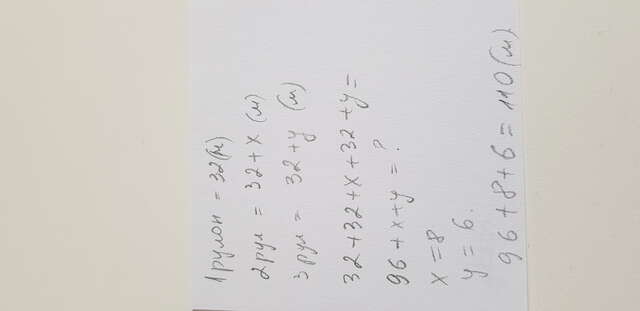 1 рулон = 32(м)
2 рул = 32 + x (м)
3 рул = 32 + y (м)
32 + 32 + x + 32 + y =
96 + x + y = ?
x = 8
y = 6.
96 + 8 + 6 = 110 (м)